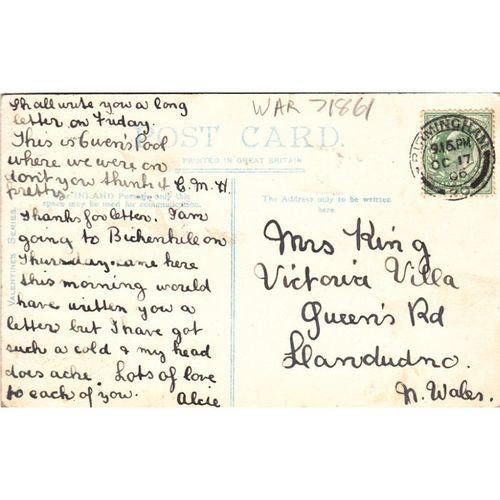 Shall write you a long
letter on Friday.
This is Gwen's Pool
where we were on
don't you think it
pretty. C. M. H.
Thanks for letter. I am
going to Bickenhill on
Thursday. came here
this morning would
have written you a
letter but I have got
such a cold & my head
does ache. Lots of love
to each of you.
WAR 71861
POST CARD.
PRINTED IN GREAT BRITAIN
INLAND Postage only this
space may be used for communication.
The Address only to be written
here.
VALENTINE'S SERIES
BIRMINGHAM
9.15 PM
OC 17
06
Mrs King
Victoria Villa
Queen's Rd
Llandudno.
N. Wales.